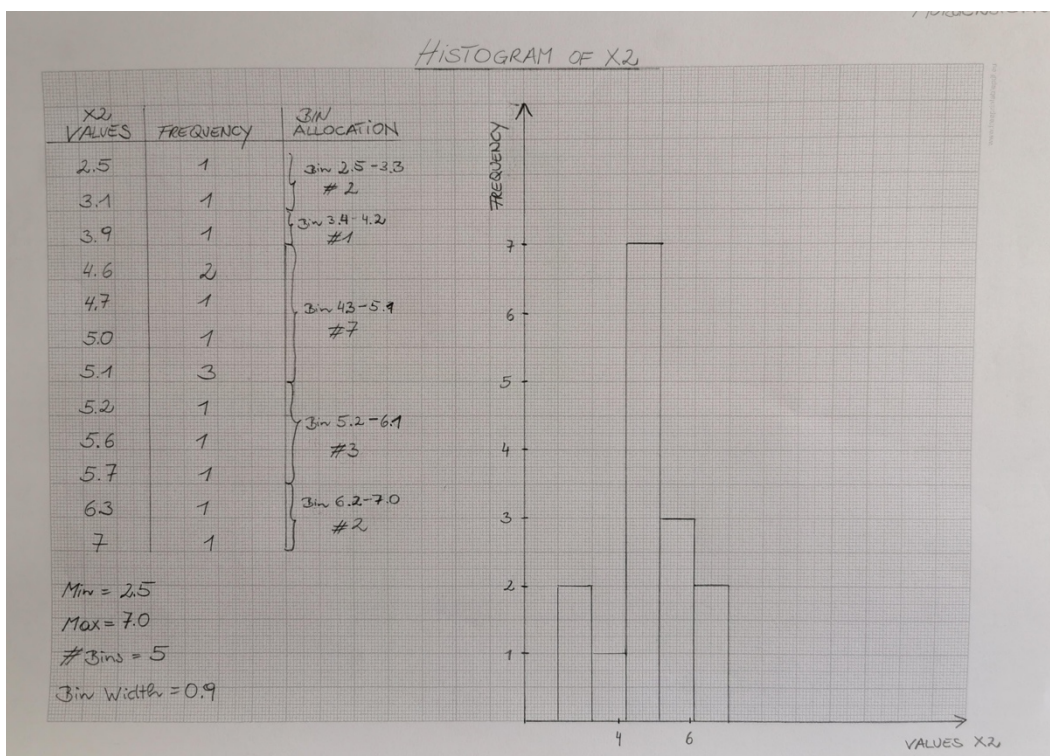 HISTOGRAM OF X2
X2 VALUES FREQUENCY BIN ALLOCATION
2.5 1 Bin 2.5-3.3
# 2
3.1 1
Bin 3.4-4.2
3.9 1 #1
4.6 2
4.7 1 Bin 43-5.1
5.0 1 #7
5.1 3
5.2 1 Bin 5.2-6.1
5.6 1 #3
5.7 1
63 1 Bin 6.2-7.0
7 1 #2
Min = 2.5
Max = 7.0
# Bins = 5
Bin Width = 0.9
FREQUENCY
7
6
5
4
3
2
1
4 6
VALUES X2